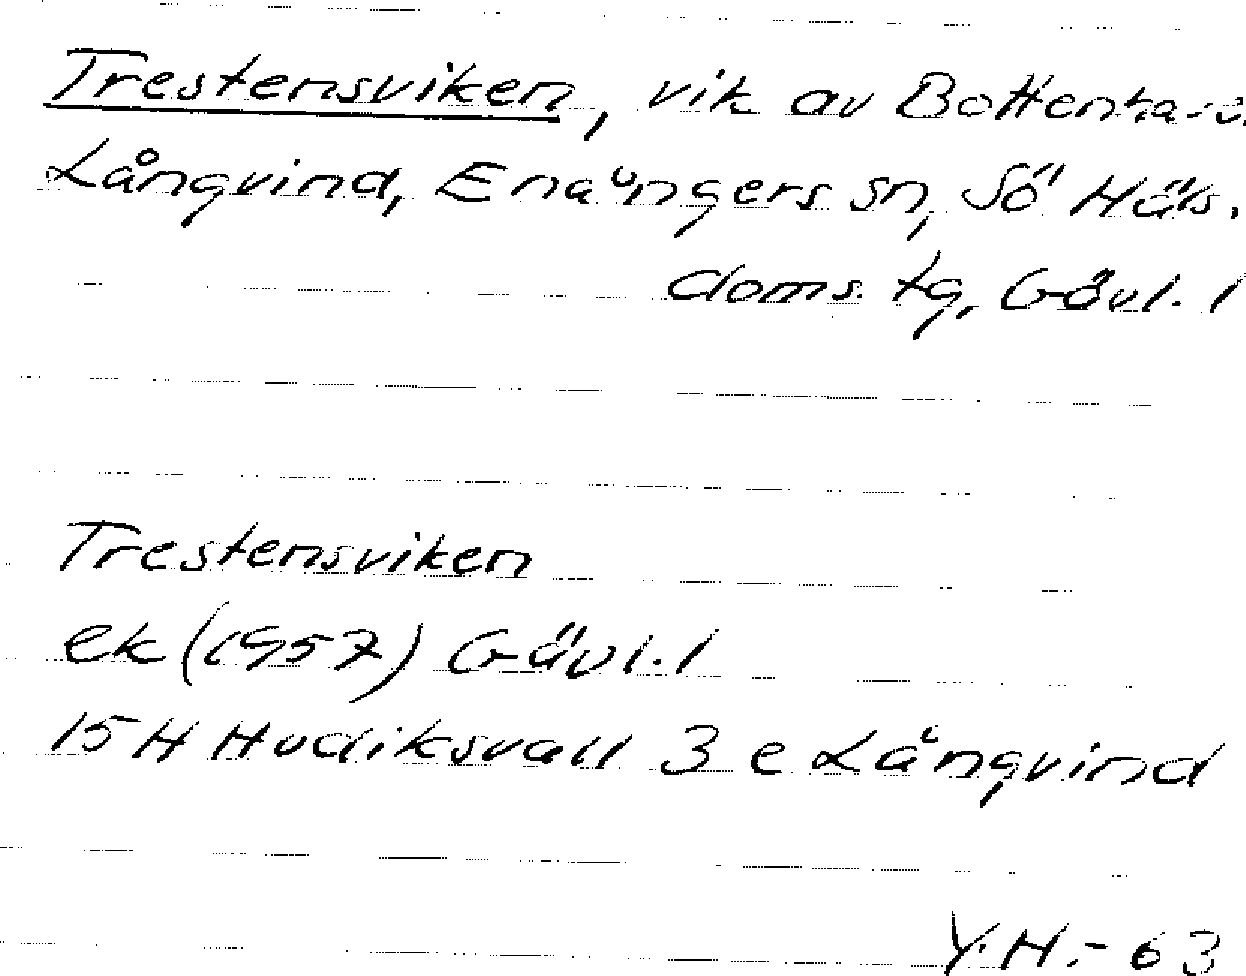 Trestensviken, vik av Bottenhav.
Långvind, Enångers sn, Sö Häls.
doms. tg, Gävl. l
Trestensviken
ek (1957) Gävl. l
15 H Hudiksvall 3 e Långvind
Y.H.-63